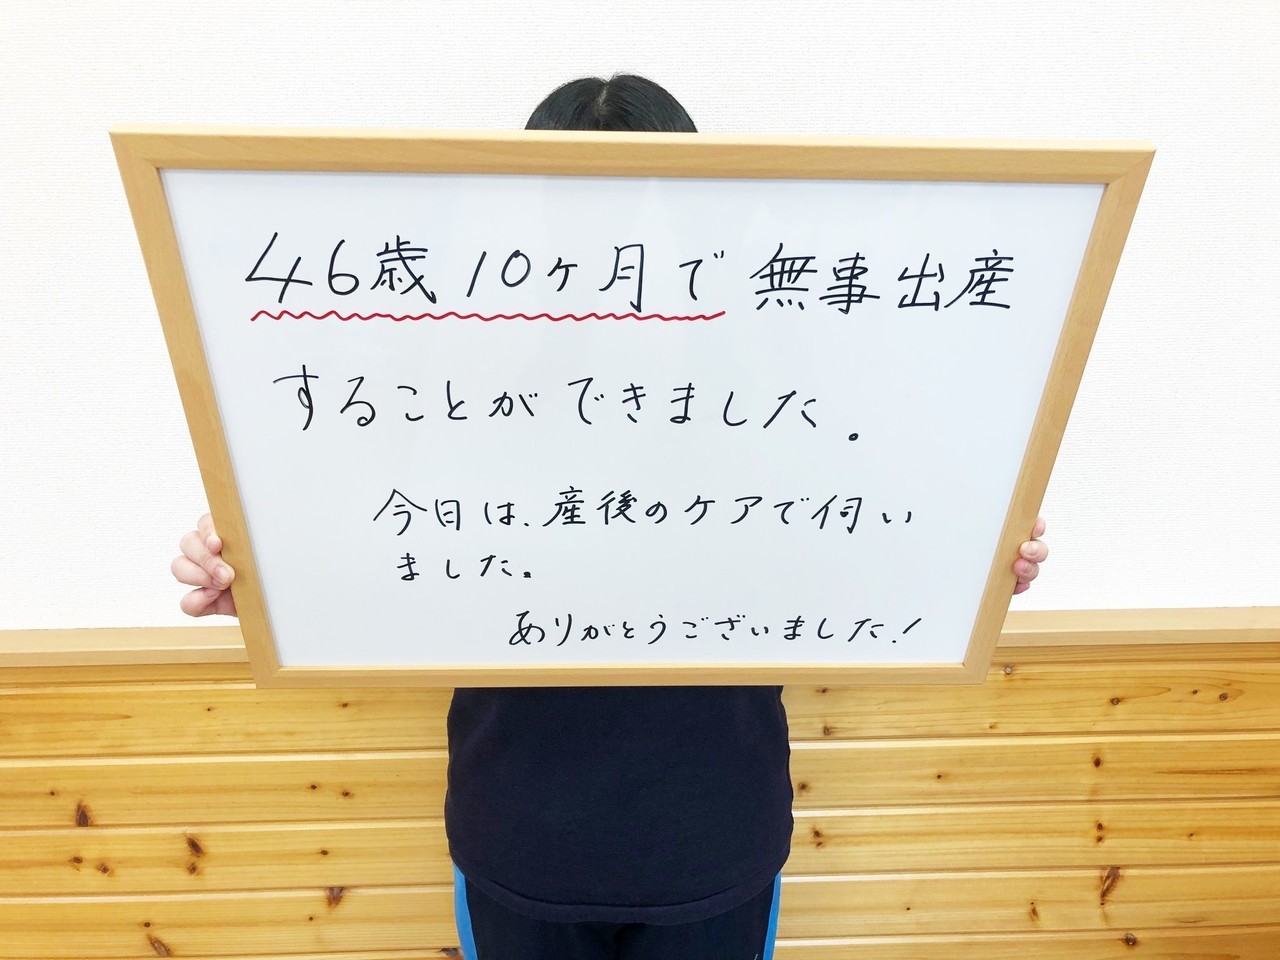 46歳10ヶ月で無事出産
することができました。
今日は、産後のケアで伺い
ました。
ありがとうございました!